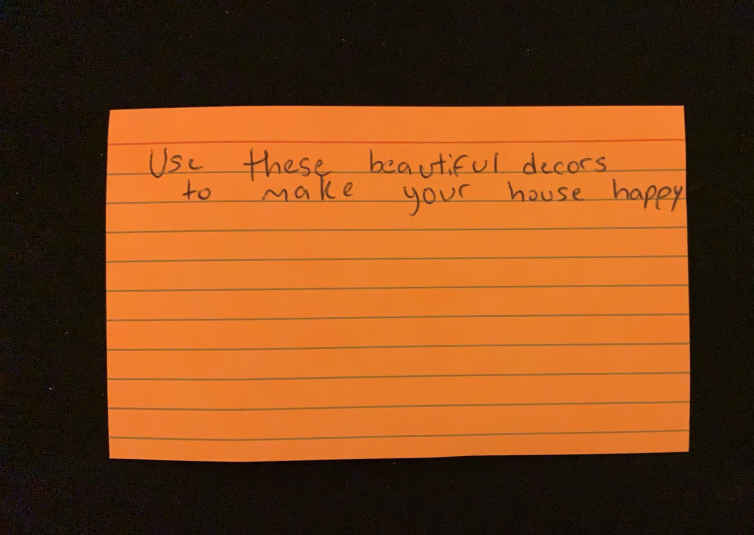 Use these beautiful decors
to make your house happy